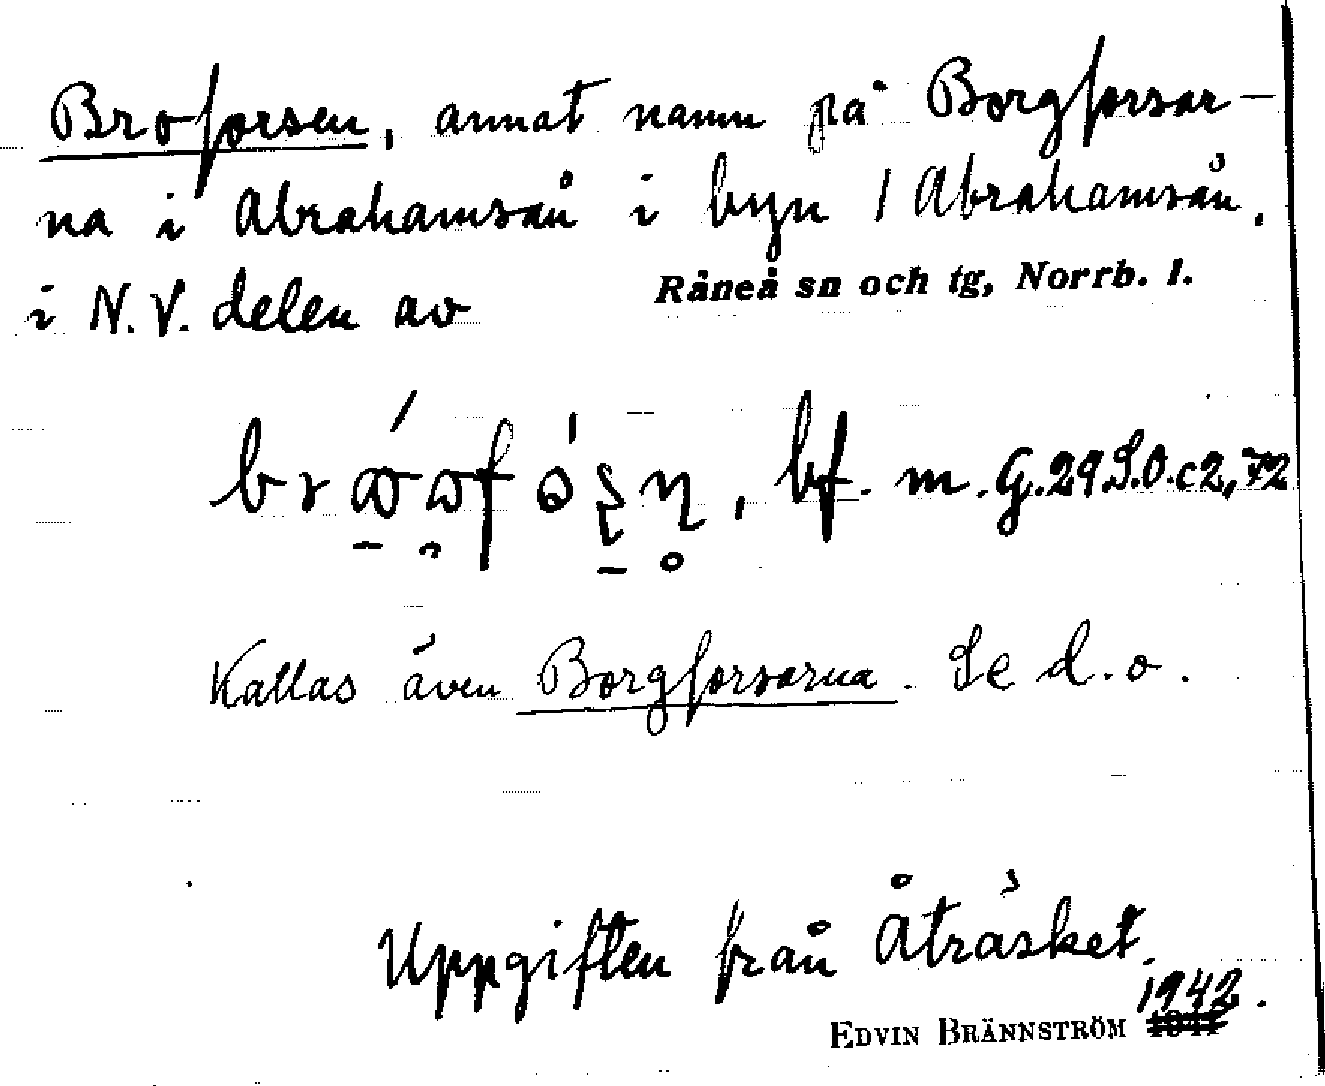 Broforsen, annat namn på Borgforsar-
na i Abrahamsån i byn 1 Abrahamsån.
i N.V. delen av Råneå sn och tg, Norrb. l.
bf. m. G.29.S.O.c2,
Kallas även Borgforsarna. Se d.o.
Uppgiften från Åträsket.
1942.
EDVIN BRÄNNSTRÖM 1941